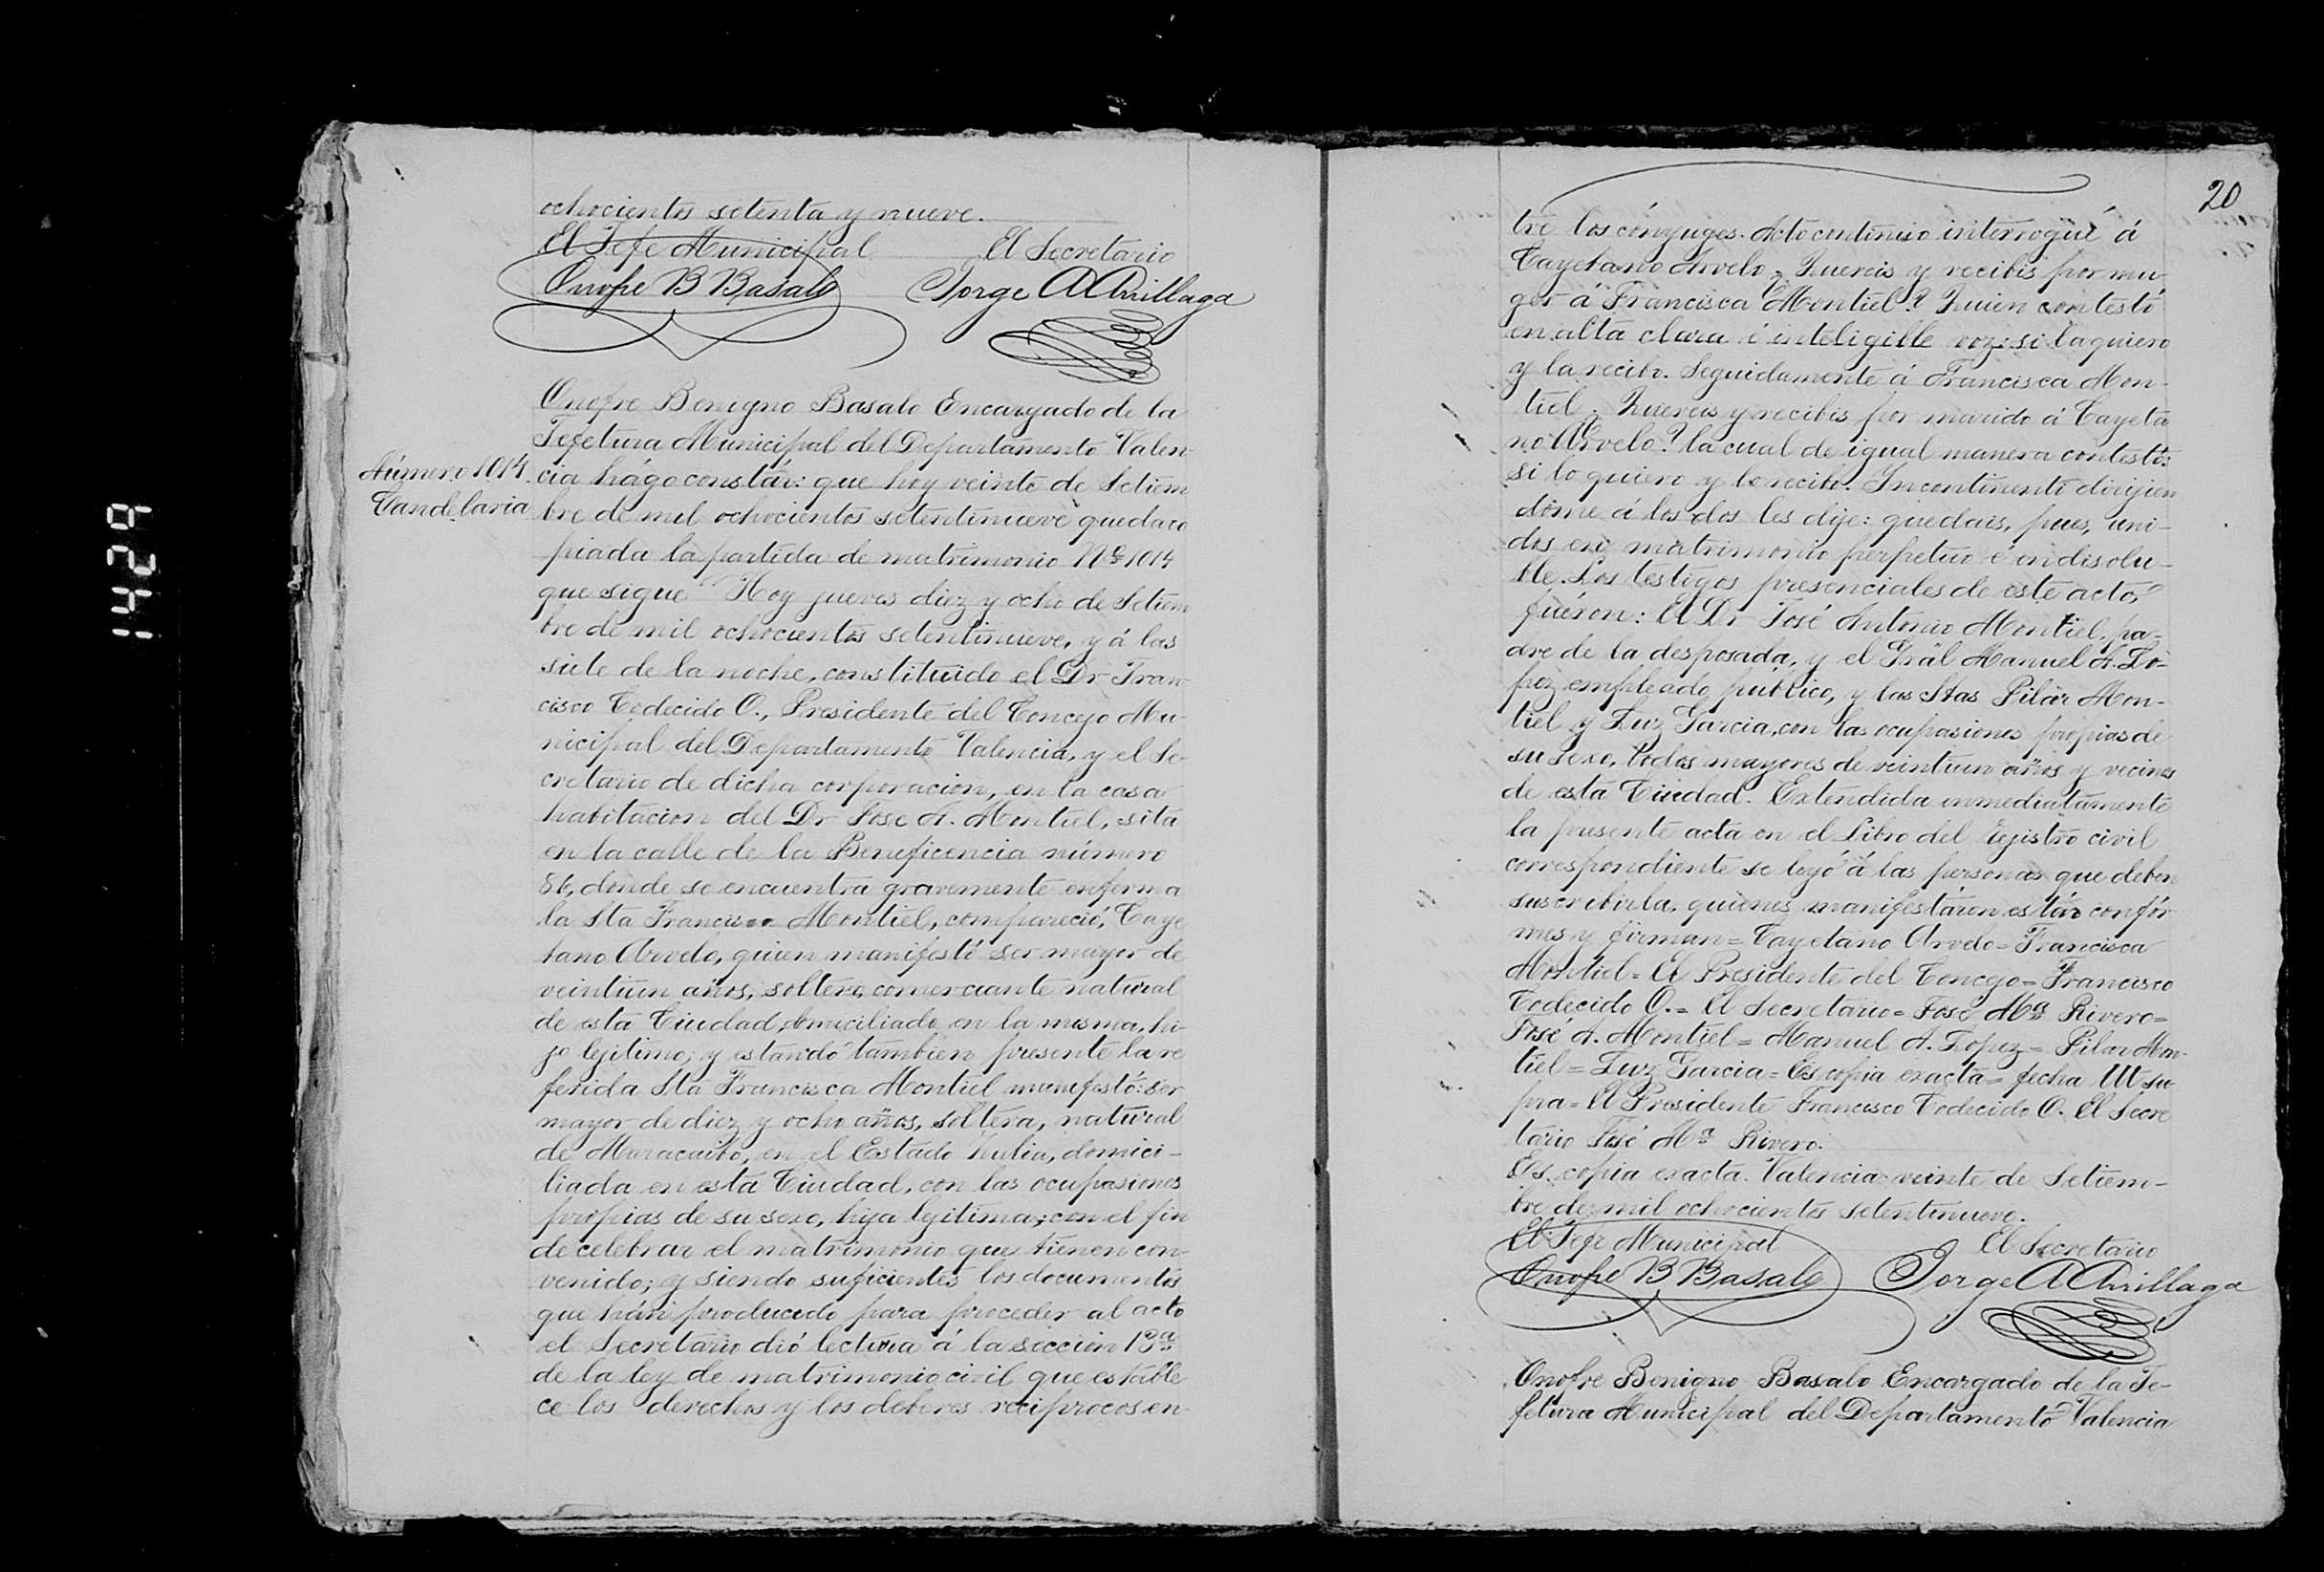 1429
ochocientos setenta y nueve.
El Jefe Municipal El Secretario
Onofre B Basalo Jorge A Arrillaga
Onofre Benigno Basalo Encargado de la
Jefetura Municipal del Departamento Valen
Número 1014. cia hágo constár: que hoy veinte de Setiem
Candelaria bre de mil ochocientos setentinueve queda co
piada la partida de matrimonio No 1014
que sigue "Hoy jueves diez y ocho de Setiem
bre de mil ochocientos setentinueve, y á las
siete de la noche, constituido el Dr Fran
cisco Codecido O., Presidente del Concejo Mu-
nicipal del Departamento Valencia, y el Se-
cretario de dicha corporacion, en la casa
habitacion del Dr Jose A. Montiel, sita
en la calle de la Beneficencia número
86, donde se encuentra gravemente enferma
la Sta Francisca Montiel, compareció, Caye
tano Arvelo, quien manifestó ser mayor de
veintiun años, soltero, comerciante natural
de esta Ciudad, domiciliado en la misma, hi-
jo lejitimo; y estando tambien presente la re
ferida Sta Francisca Montiel manifestó: ser
mayor de diez y ocho años, soltera, natural
de Maracaibo, en el Estado Zulia, domici-
liada en esta Ciudad, con las ocupasiones
propias de su sexo, hija lejitima; con el fin
de celebrar el matrimonio que tienen con-
venido; y siendo suficientes los documentos
que hán producido para proceder al acto
el Secretario dió lectura á la seccion 13a
de la ley de matrimonio civil que estable
ce los derechos y los deberes reciprocos en-
20
tre los cónyuges. Acto continuo interrogué á
Cayetano Arvelo ¿Quereis y recibis por mu-
ger á Francisca Montiel? Quien contestó
en alta clara é inteligible voz: si la quiero
y la recibo. Seguidamente á Francisca Mon-
tiel ¿Quereis y recibis por marido á Cayeta
no Arvelo? la cual de igual manera contestó:
si lo quiero y lo recibo. Incontinenti dirijien
dome á los dos les dije: quedais, pues, uni-
dos en matrimonio perpetuo é indisolu-
ble. Los testigos presenciales de este acto,
fuéron: El Dr José Antonio Montiel, pa-
dre de la desposada, y el Gräl Manuel A. Lo-
pez empleado público, y las Stas Pilar Mon-
tiel y Luz Garcia, con las ocupasiones propias de
su sexo, todos mayores de veintiun años y vecinos
de esta Ciudad. Extendida inmediatamente
la presente acta en el Libro del rejistro civil
correspondiente se leyó á las personas que deben
suscribirla, quienes manifestáron estár confór
mes y firman = Cayetano Arvelo = Francisca
Montiel = El Presidente del Concejo = Francisco
Codecido O. = El Secretario = José Ma Rivero =
José A. Montiel = Manuel A. Lopez = Pilar Mon-
tiel = Luz Garcia = Es copia exacta = fecha Ut su-
pra = El Presidente Francisco Codecido O. El Secre
tario José Ma Rivero.
Es copia exacta. Valencia veinte de Setiem-
bre de mil ochocientos setentinueve.
El Jefe Municipal El Secretario
Onofre B Basalo Jorge A Arrillaga
Onofre Benigno Basalo Encargado de la Je-
fetura Municipal del Departamento Valencia